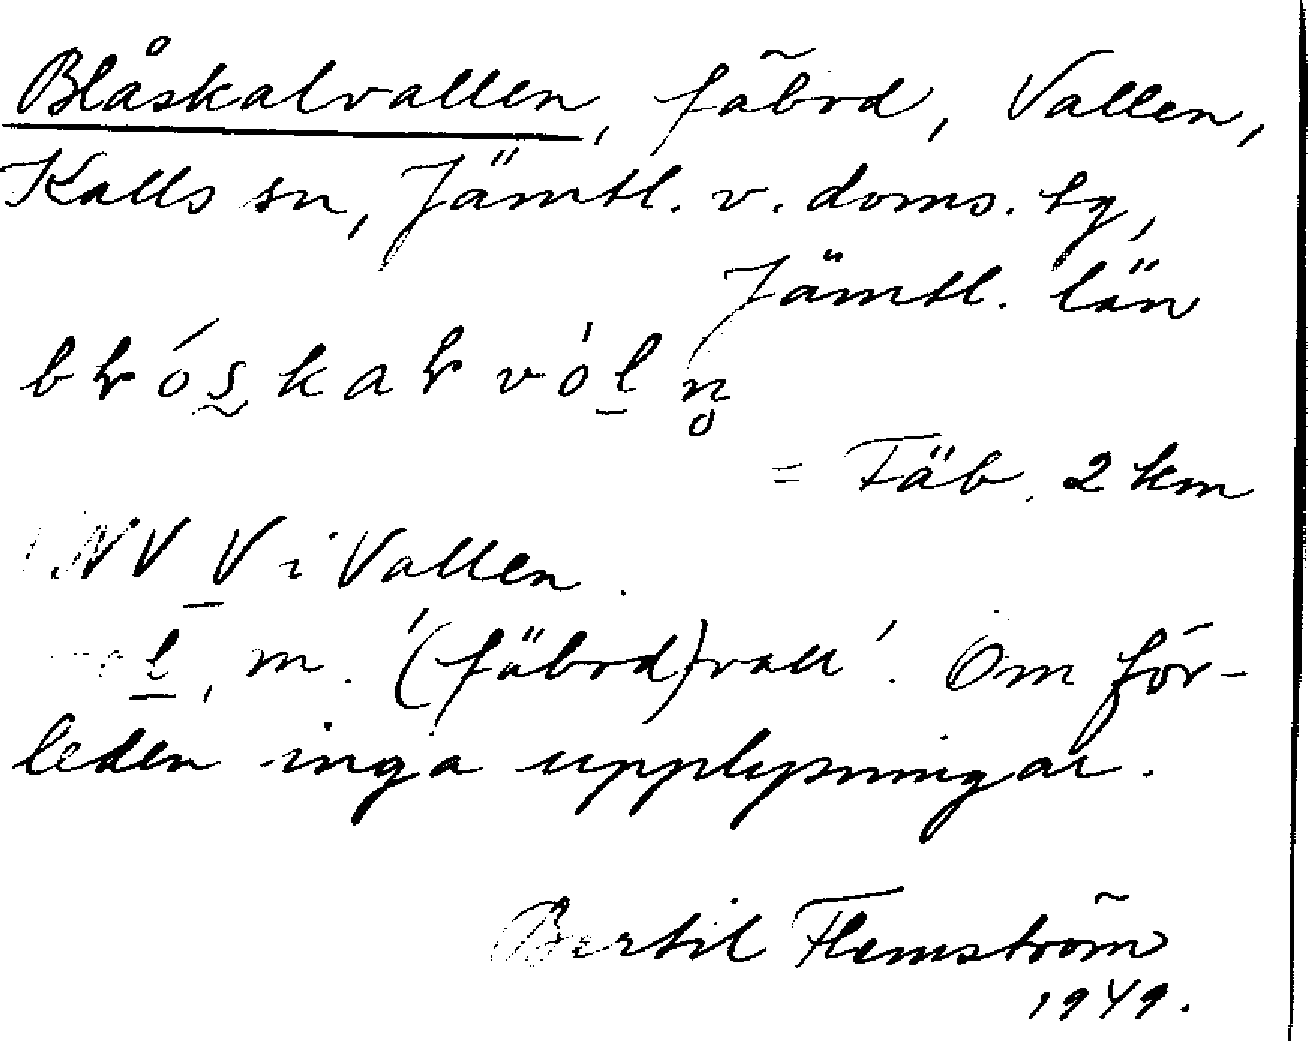 Blåskalvallen, fäbod, Vallen,
Kalls sn, Jämtl. v. doms. tg,
Jämtl. län
= Fäb. 2 km
NV V i Vallen.
m. '(fäbod)vall'. Om för-
leden inga upplysningar.
Bertil Flemström
1949.